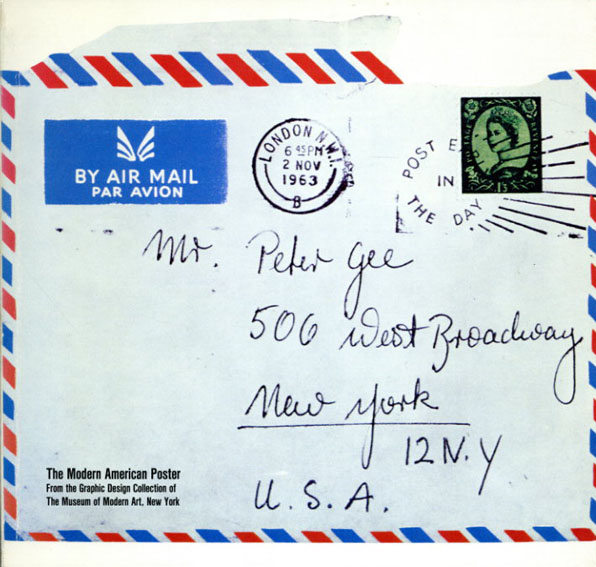 LONDON N.W.1.
6 45 PM
2 NOV
1963
POST E
IN
THE DAY
BY AIR MAIL
PAR AVION
Mr. Peter Gee
506 West Broadway
New York
12 N.Y
U.S.A.
The Modern American Poster
From the Graphic Design Collection of
The Museum of Modern Art, New York